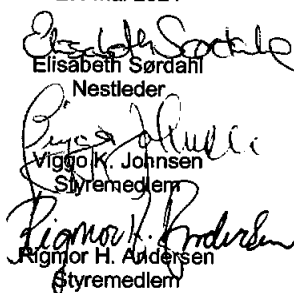 Elisabeth Sørdahl
Elisabeth Sørdahl
Nestleder
Viggo K. Johnsen
Styremedlem
Rigmor H. Andersen
Rigmor H. Andersen
Styremedlem